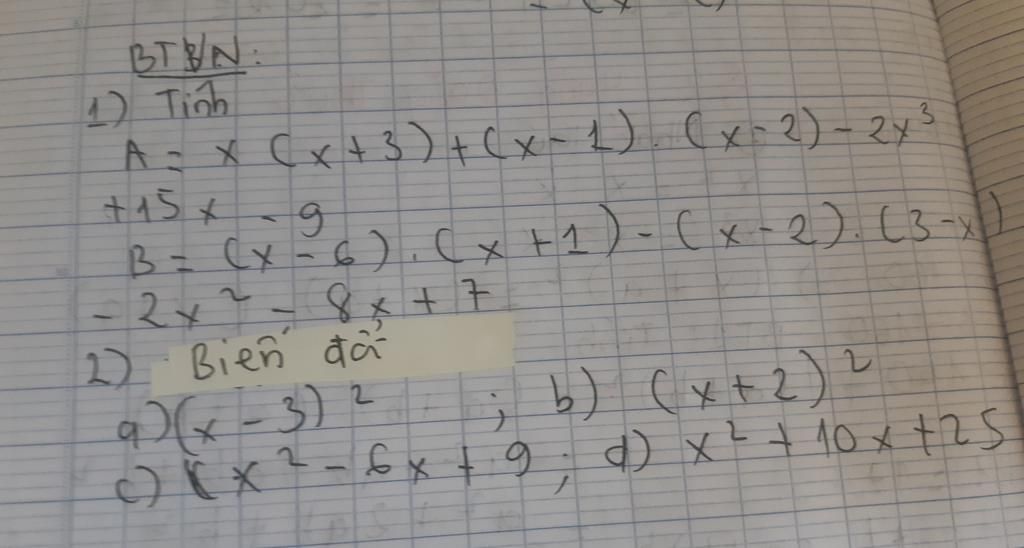 BTVN:
1) Tính
A = x (x + 3) + (x - 1) . (x - 2) - 2x³
+ 15x - 9
B = (x - 6) . (x + 1) - (x - 2) . (3 - x)
- 2x² - 8x + 7
2) Biến đổi
a) (x - 3)² ; b) (x + 2)²
c) x² - 6x + 9 ; d) x² + 10x + 25